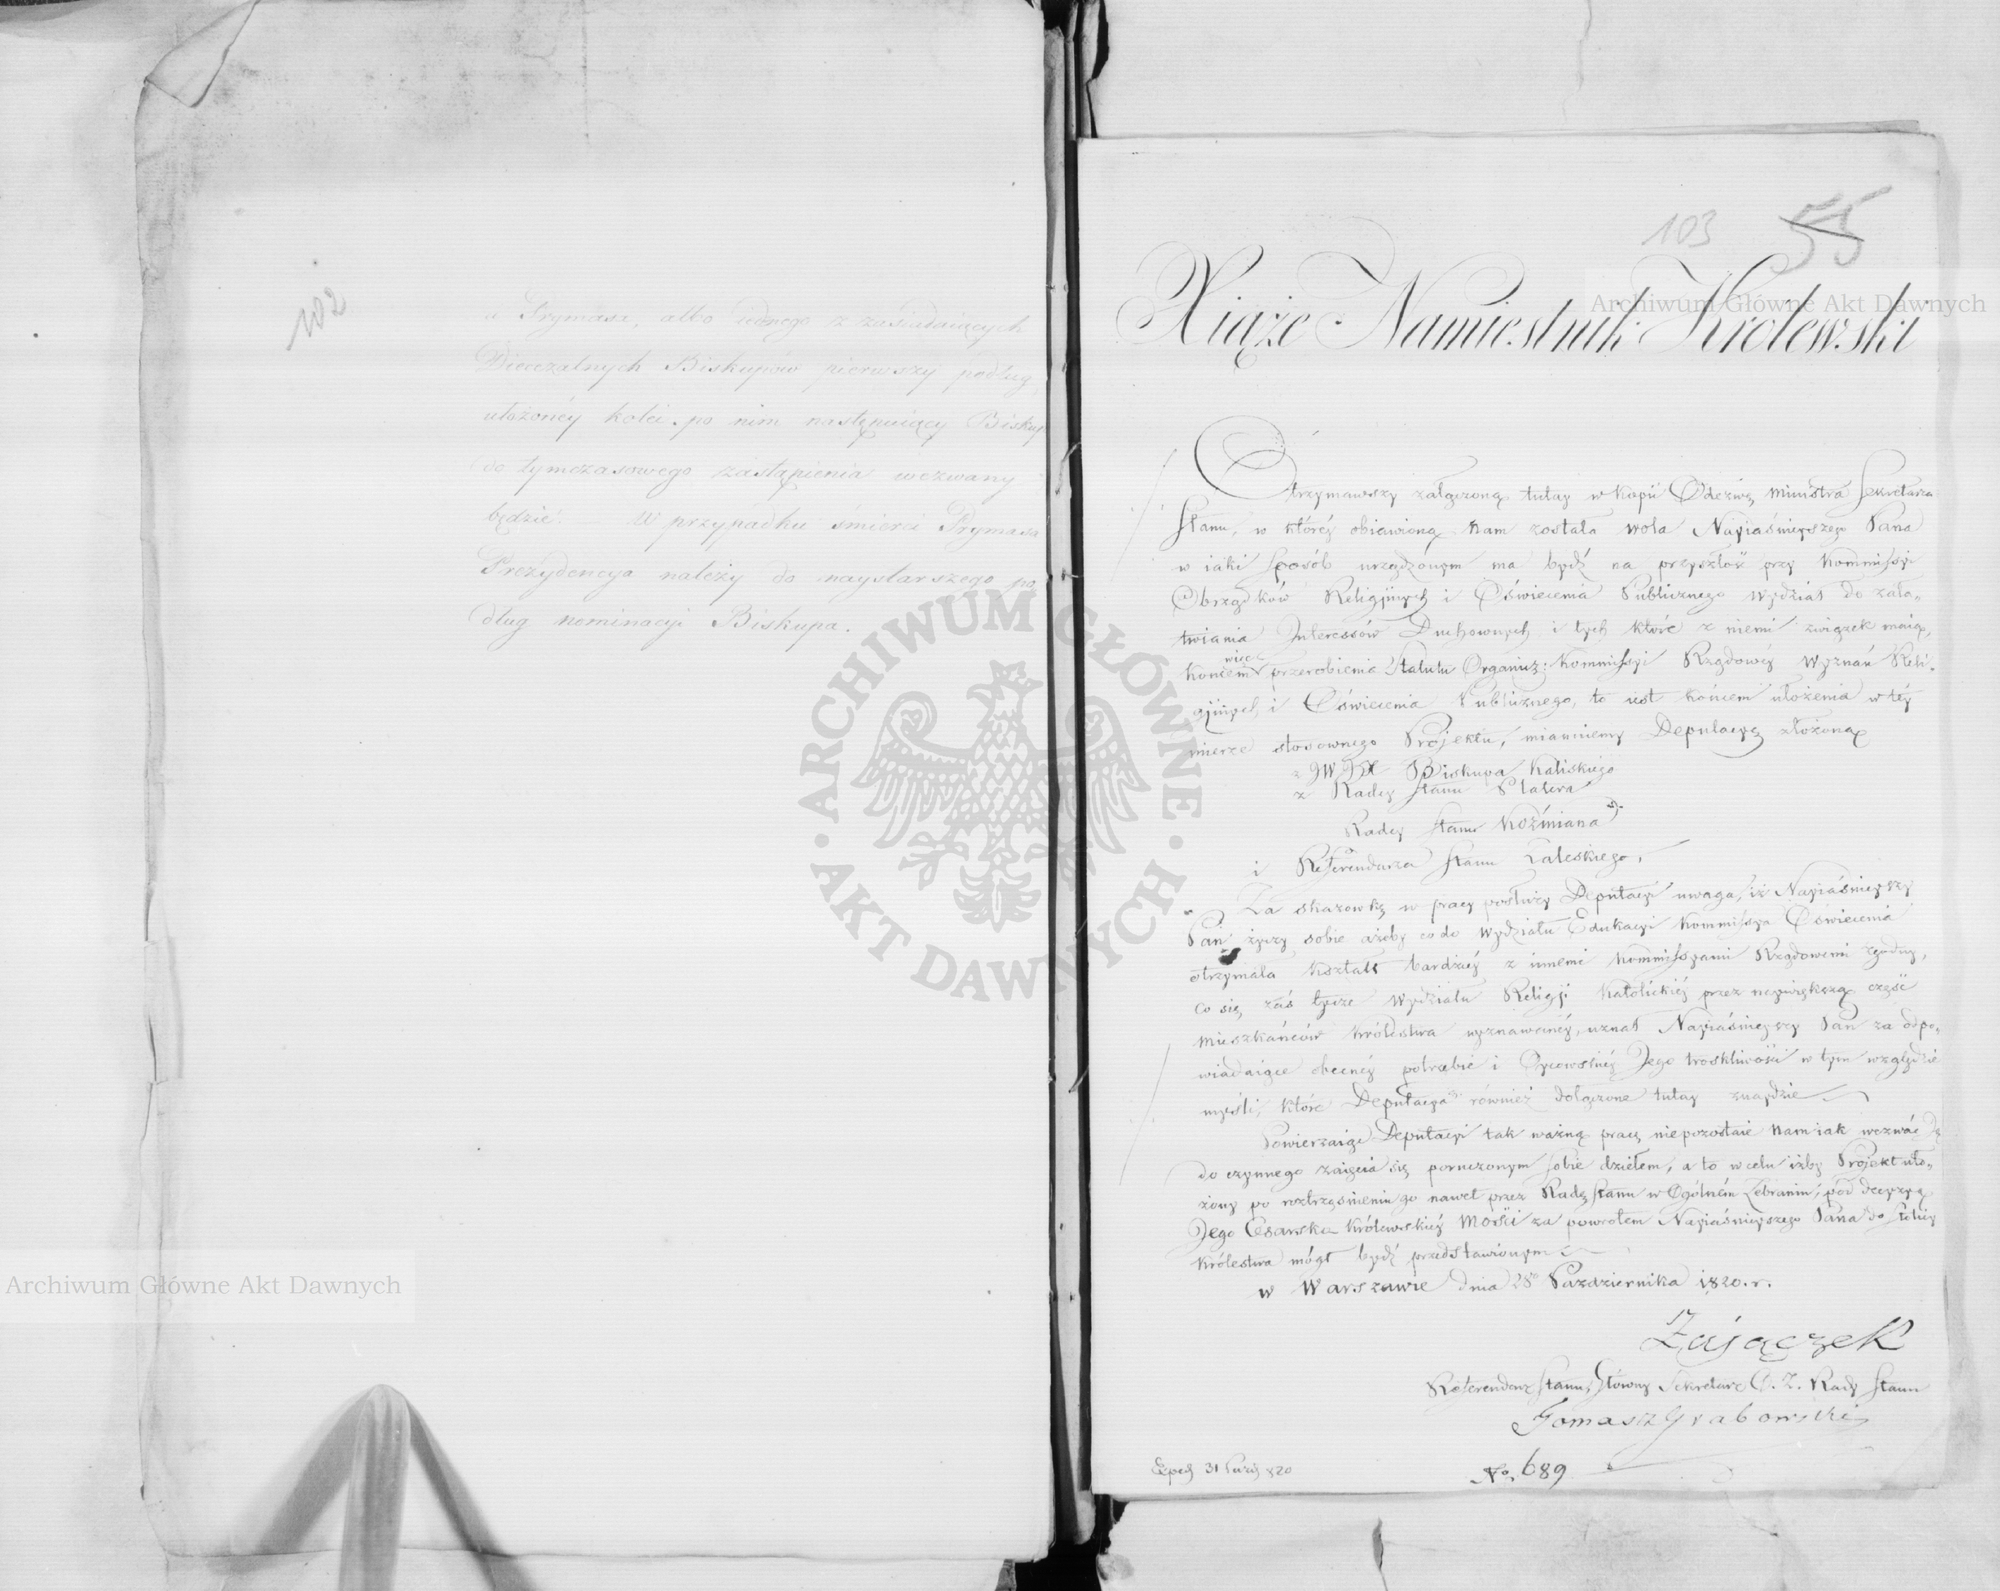 102
a Prymasa, albo iednego z zasiadaiących
Diecezalnych Biskupów pierwszy podług
ułożonéy kolei. po nim następuiący Biskup
do tymczasowego zastąpienia wezwany
będzie. — W przypadku śmierci Prymasa
Prezydencya należy do naystarszego po
dług nominacyi Biskupa.
103 55
Xiąże Namiestnik Królewski
Otrzymawszy załączoną tutay w kopii Odezwę Ministra Sekretarza
Stanu, w któréy obiawioną nam została wola Nayiaśnieyszego Pana
w iaki sposób urządzonym ma bydź na przyszłość przy Kommissyi
Obrządków Religijnych i Oświecenia Publicznego Wydział do zała-
twiania Interessów Duchownych i tych które z niemi związek maią,
końcem więc przerobienia Statutu Organicz: Kommissyi Rządowéy Wyznań Reli-
gijnych i Oświecenia Publicznego, to iest końcem ułożenia w téy
mierze stosownego Projektu, mianuiemy Deputacyą złożoną
z JW JX Biskupa Kaliskiego
z Radcy Stanu Platera
Radcy Stanu Koźmiana
i Referendarza Stanu Zaleskiego,
Za skazówkę w pracy posłuży Deputacyi uwaga, iż Nayiaśnieyszy
Pan życzy sobie ażeby co do Wydziału Edukacyi Kommissya Oświecenia
otrzymała kształt bardziéy z innemi Kommissyami Rządowemi zgodny,
co się zaś tycze Wydziału Religji Katolickiéy przez naywiększą część
mieszkańców Królestwa wyznawanéy, uznał Nayiaśnieyszy Pan za odpo-
wiadaiące obecnéy potrzebie i Oycowskiéy Jego troskliwości w tym względzie
myśli, które Deputacya również dołączone tutay znaydzie
Powierzaiąc Deputacyi tak ważną pracę nie pozostaie nam iak wezwać Ją
do czynnego zaięcia się poruczonym sobie dziełem, a to w celu iżby Projekt uło-
żony po roztrząśnieniu go nawet przez Radę Stanu w Ogólném Zebraniu, pod decyzyą
Jego Cesarsko Królewskiéy Mości za powrotem Nayiaśnieyszego Pana do Stolicy
Królestwa mógł bydź przedstawionym
w Warszawie dnia 28 Października 1820. r.
Zajączek
Referendarz Stanu, Główny Sekretarz O. Z. Rady Stanu
Tomasz Grabowski
Exped 31 Paźd 820 No. 689
Archiwum Główne Akt Dawnych
Archiwum Główne Akt Dawnych
ARCHIWUM GŁÓWNE · AKT DAWNYCH ·